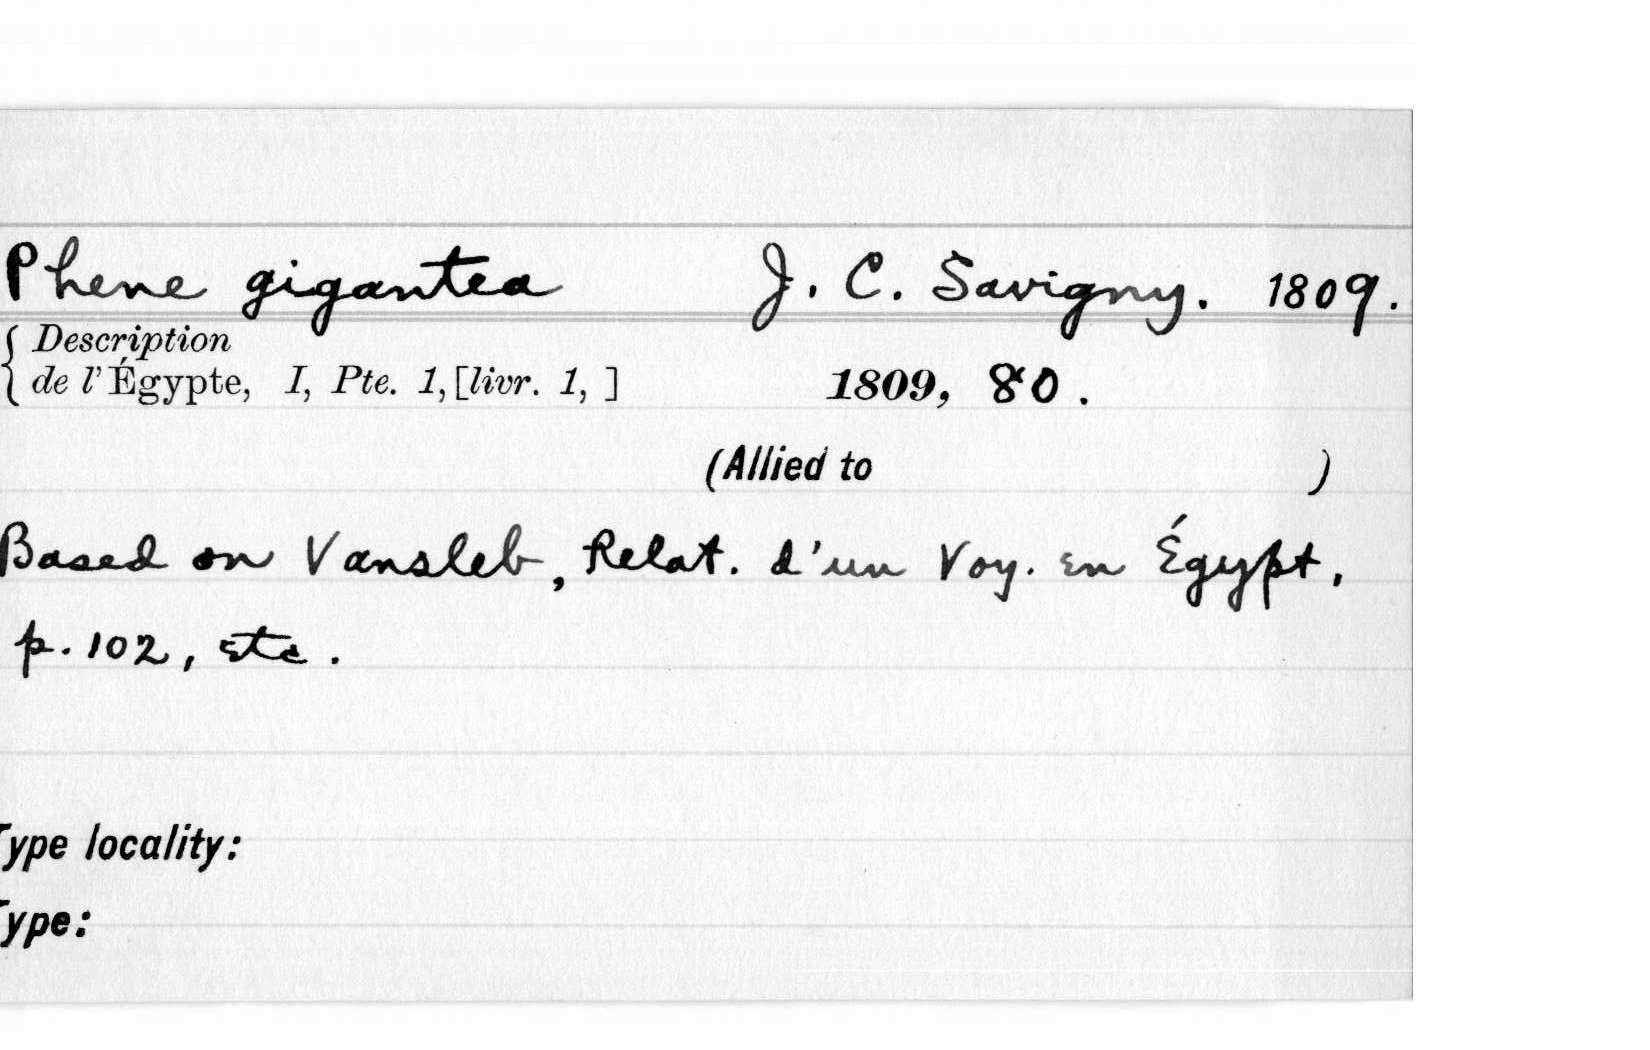 Phene gigantea J. C. Savigny. 1809.
{ Description
de l'Égypte, I, Pte. 1, [livr. 1, ] 1809, 80.
(Allied to )
Based on Vansleb, Relat. d'un Voy. en Égypt,
p. 102, etc.
Type locality:
Type: